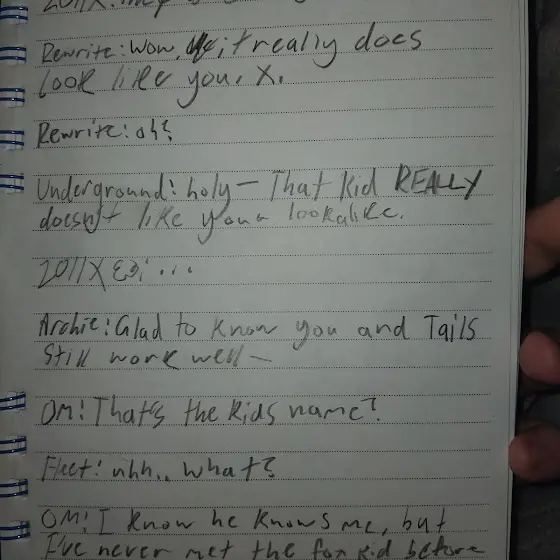 2011X: they's
Rewrite: Wow, it really does
look like you, X.
Rewrite: oh?
Underground: holy— That kid REALLY
doesn't like your lookalike.
2011X E3: ...
Archie: Glad to know you and Tails
still work well—
OM: That's the kids name?
Fleet: uhh.. what?
OM: I know he knows me, but
I've never met the fox kid before